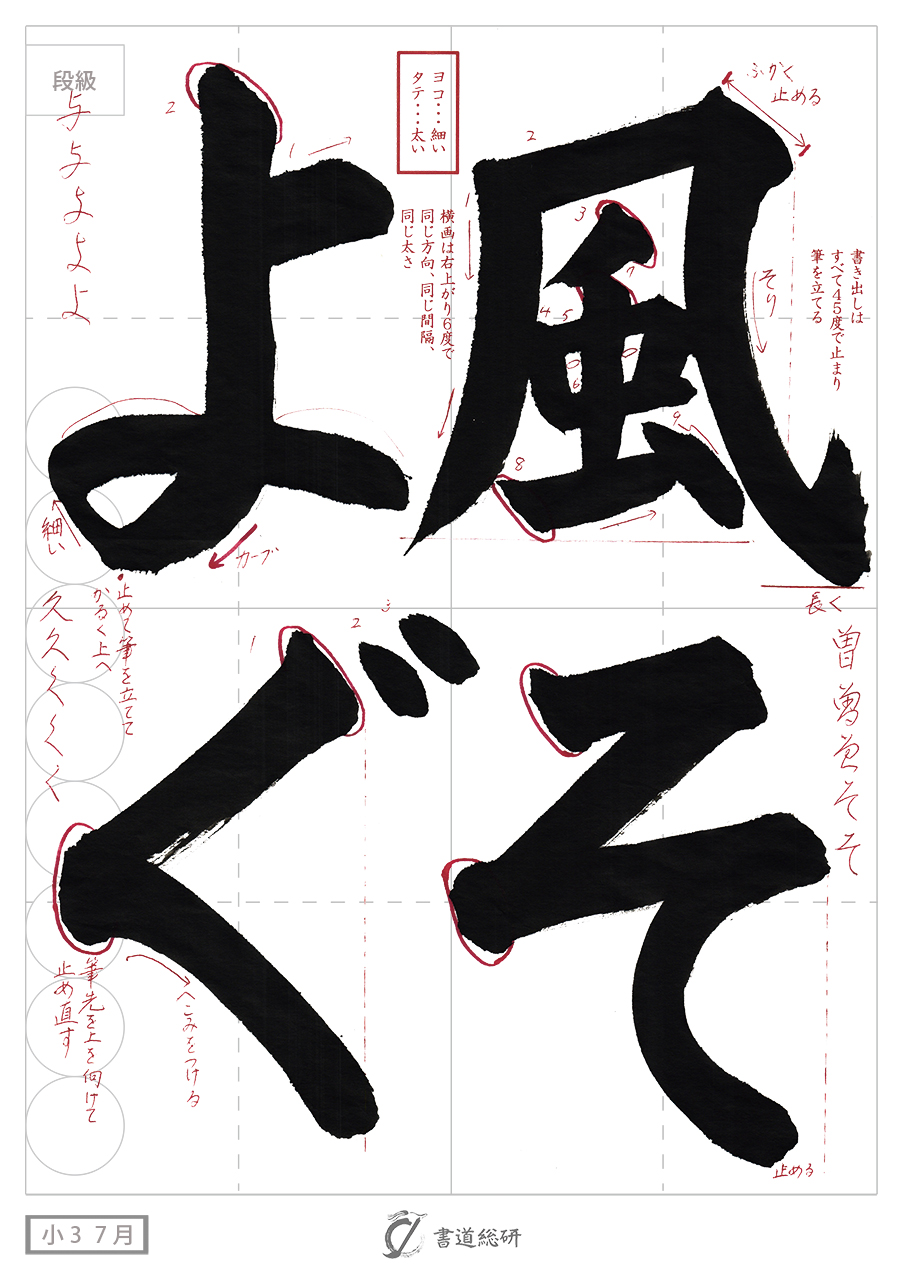 風
そ
よ
ぐ
ヨコ・・・細い
タテ・・・太い
横画は右上がり6度で
同じ方向、同じ間隔、
同じ太さ
書き出しは
すべて45度で止まり
筆を立てる
ふかく
止める
そり
長く
1
2
3
4
5
6
7
8
9
曽
曽
そ
そ
止める
段級
与
与
よ
よ
よ
2
1
カーブ
細い
止めて筆を立てて
かるく上へ
久
久
く
く
く
1
2
3
筆先を上を向けて
止め直す
へこみをつける
小3 7月
書道総研